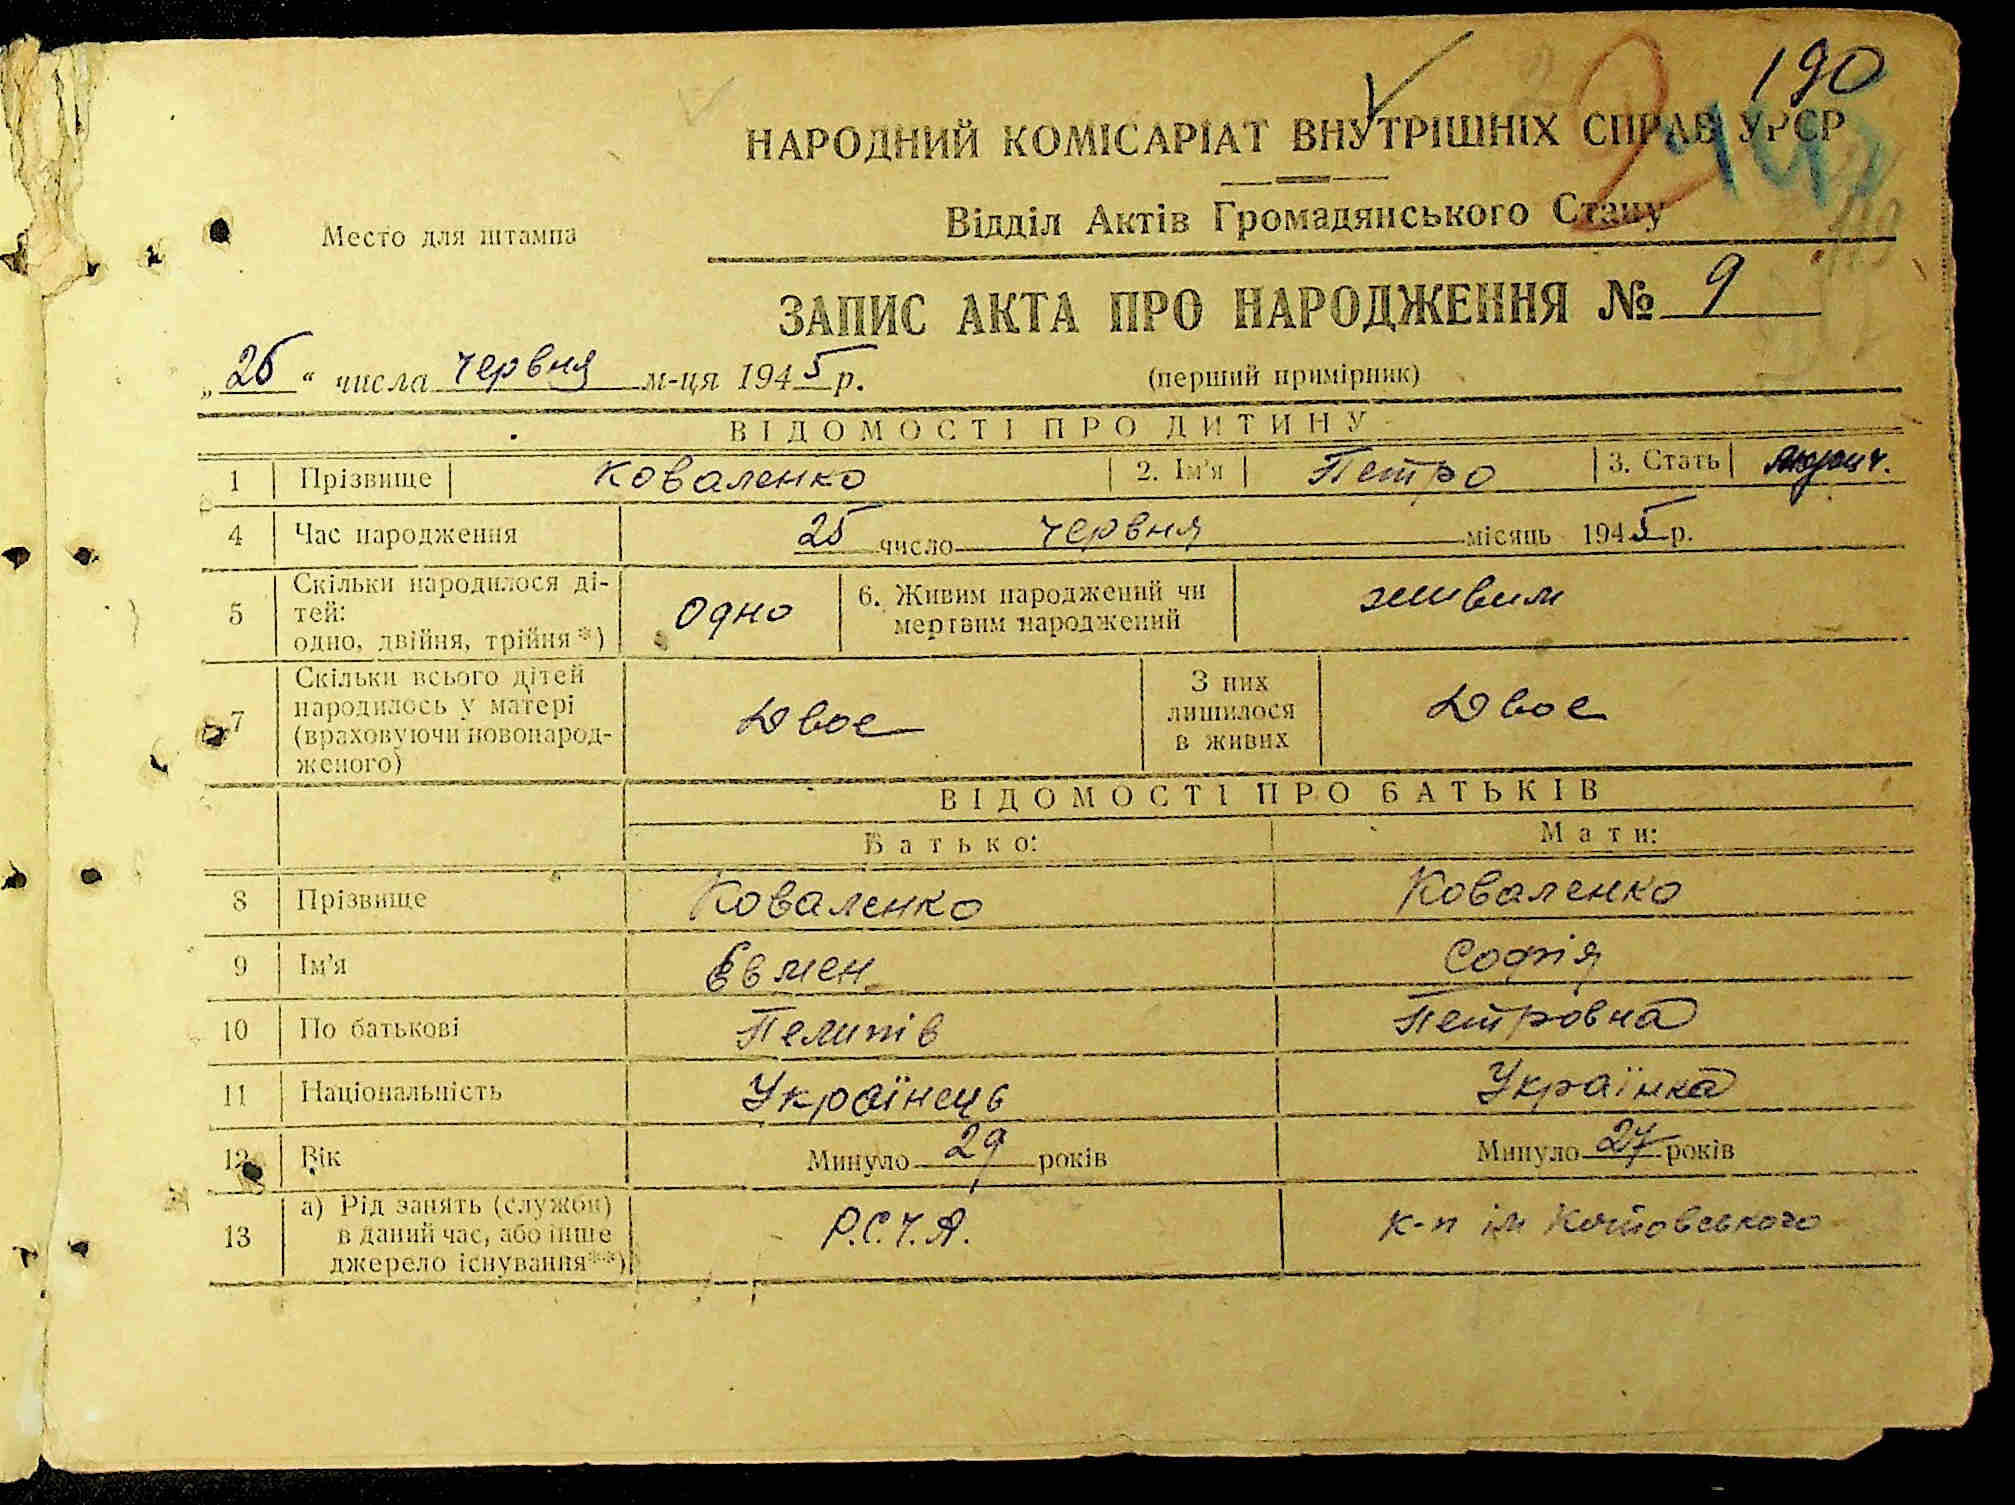 190
НАРОДНИЙ КОМІСАРІАТ ВНУТРІШНІХ СПРАВ УРСР
Відділ Актів Громадянського Стану
Место для штампа
ЗАПИС АКТА ПРО НАРОДЖЕННЯ № 9
„26“ числа червня м-ця 1945 р.
(перший примірник)
ВІДОМОСТІ ПРО ДИТИНУ
1 Прізвище Коваленко 2. Ім'я Петро 3. Стать
4 Час народження 25 число червня місяць 1945 р.
5 Скільки народилося ді-
тей:
одно, двійня, трійня*) Одно 6. Живим народжений чи
мертвим народжений живим
7 Скільки всього дітей
народилось у матері
(враховуючи новонарод-
женого) Двое З них
лишилося
в живих Двое
ВІДОМОСТІ ПРО БАТЬКІВ
Батько: Мати:
8 Прізвище Коваленко Коваленко
9 Ім'я Євмен Софія
10 По батькові Пелипів Петровна
11 Національність Українець Українка
12 Вік Минуло 29 років Минуло 27 років
13 а) Рід занять (служби)
в даний час, або інше
джерело існування**) Р.С.Ч.А. к-п ім Котовського